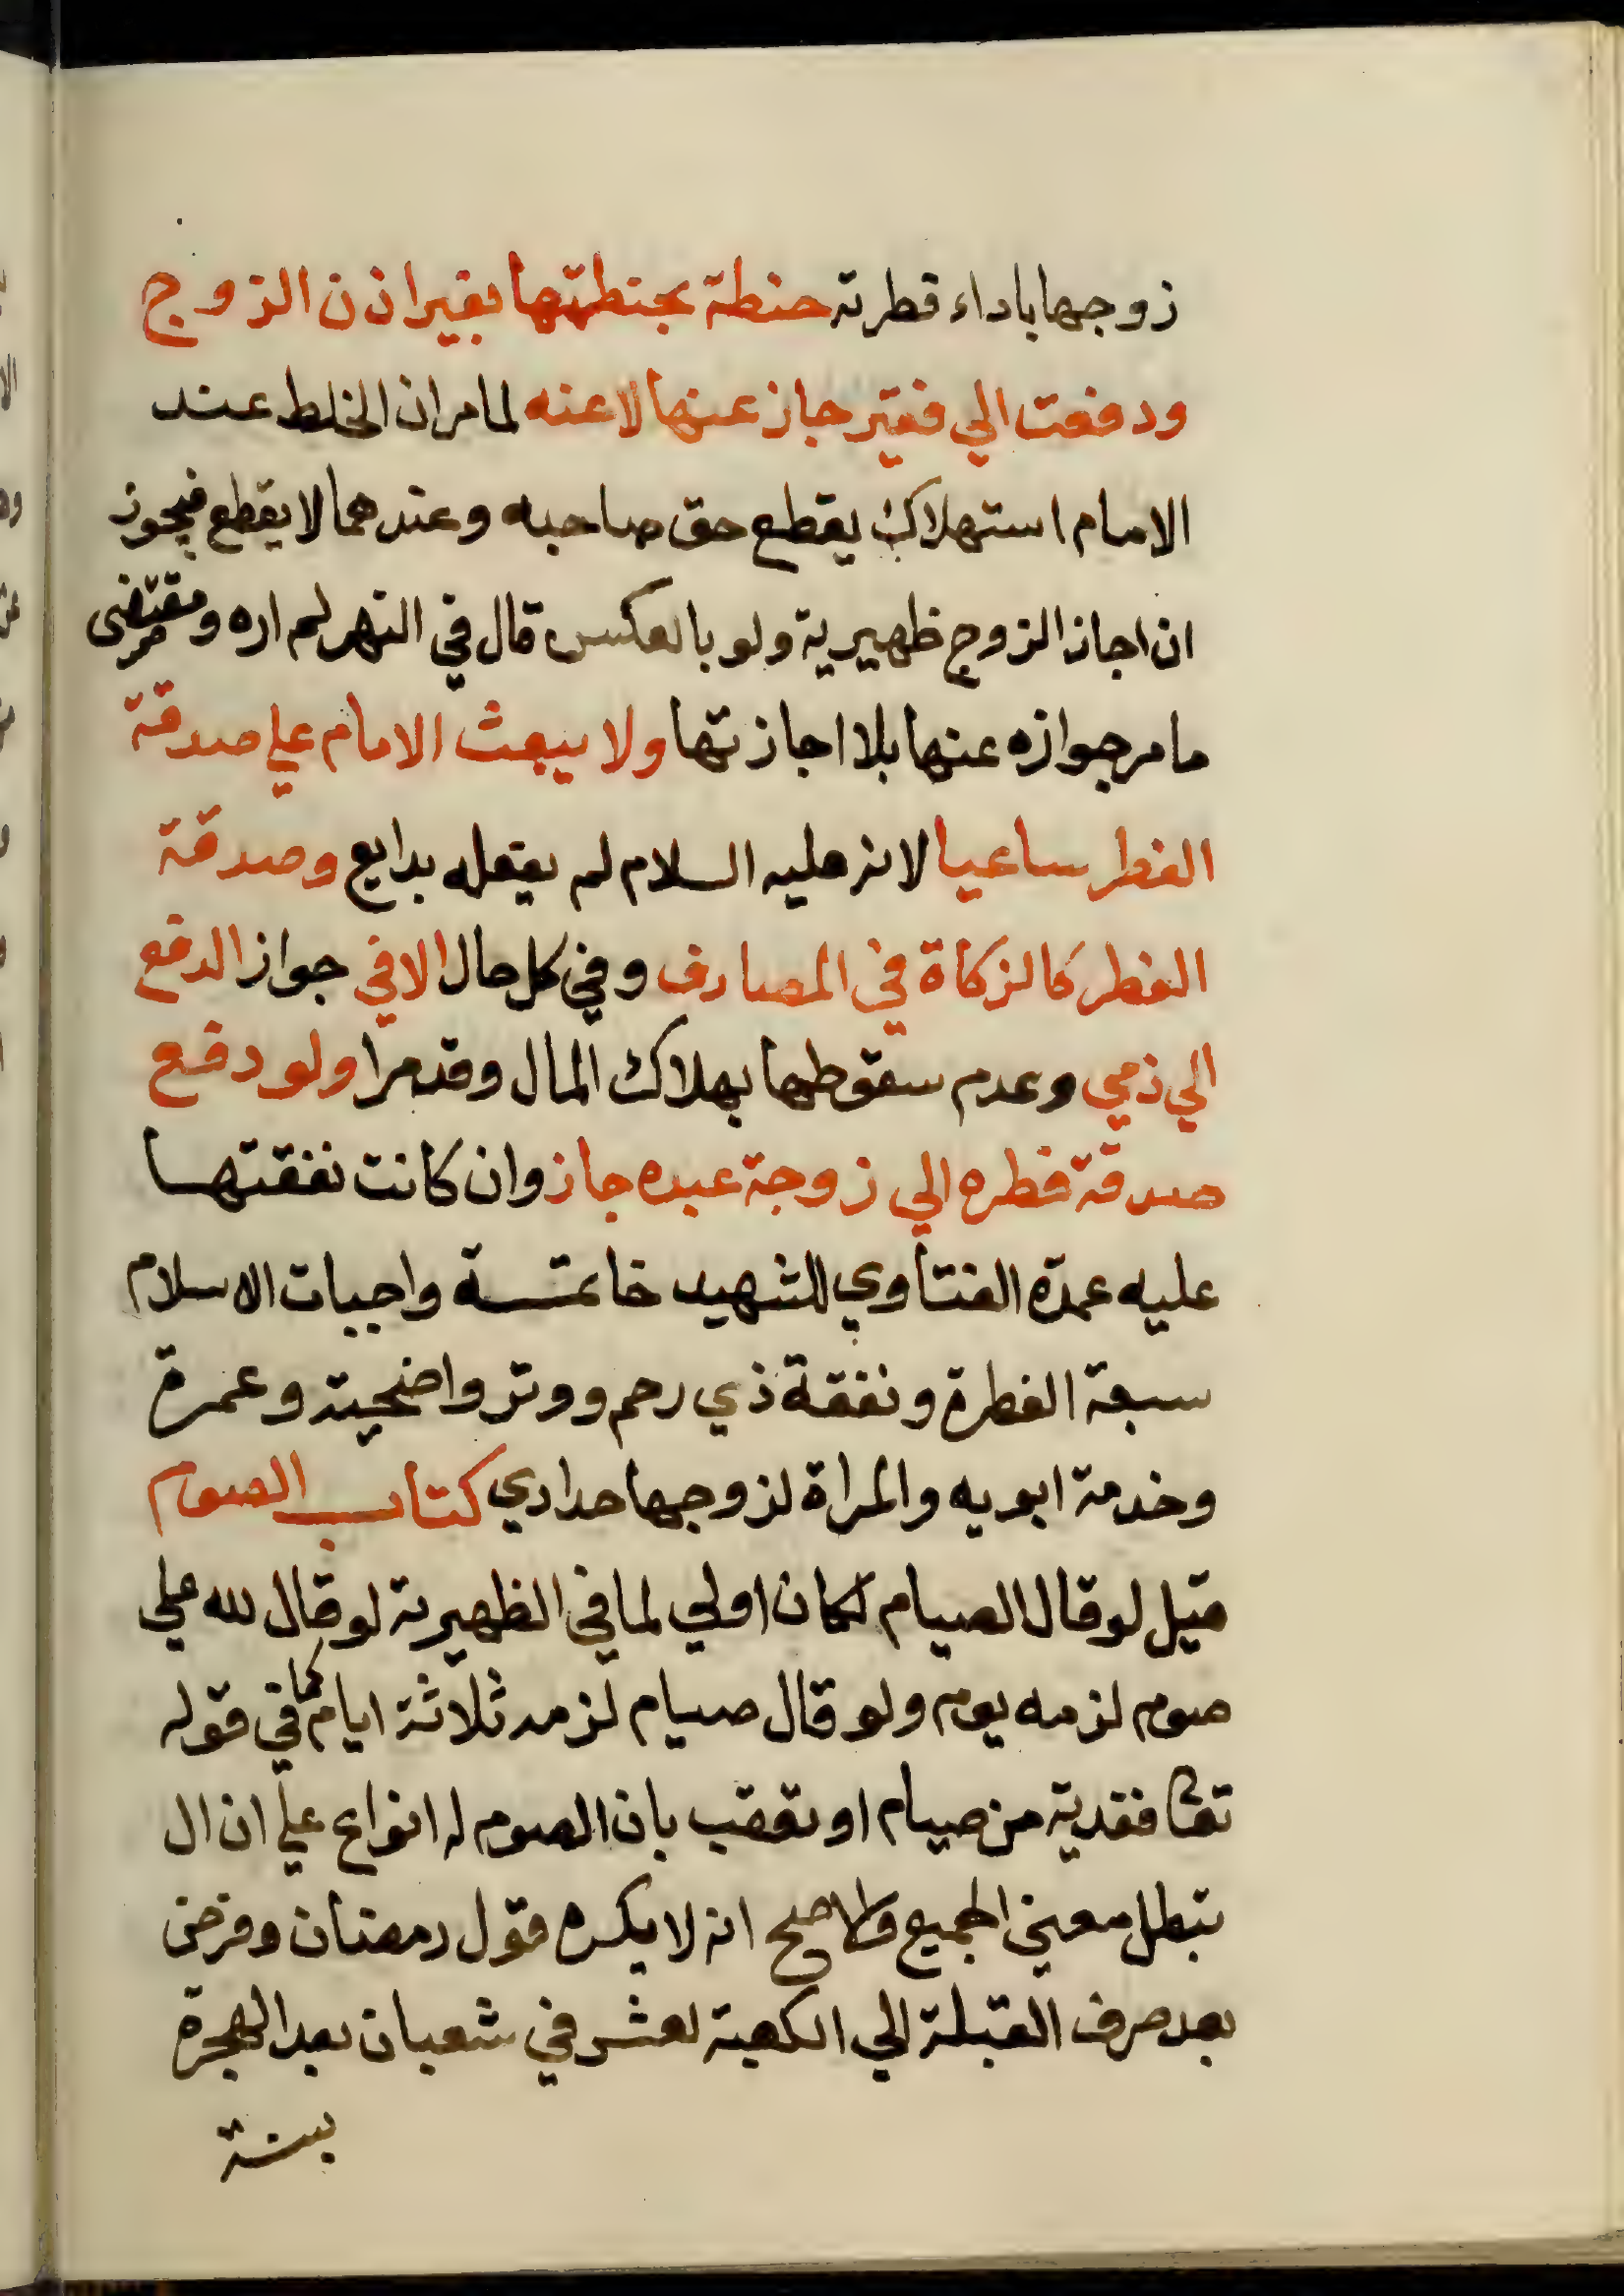 زوجها باداء فطرته حنطة بحنطتها بغير اذن الزوج
ودفعت الي فقير جاز عنها لا عنه لما مر ان الخلط عند
الامام استهلاك يقطع حق صاحبه وعندهما لا يقطع فيجوز
ان اجاز الزوج ظهيرية ولو بالعكس قال في النهر لم اره ومقتضى
ما مر جوازه عنها بلا اجازتها ولا يبعث الامام علي صدقة
الفطر ساعيا لانه عليه السلام لم يفعله بدايع وصدقة
الفطر كالزكاة في المصارف وفي كل حال الا في جواز الدفع
الي ذمي وعدم سقوطها بهلاك المال وقد مرا ولو دفع
صدقة فطره الي زوجة عبده جاز وان كانت نفقتها
عليه عمدة الفتاوي للشهيد خاتمة واجبات الاسلام
سبعة الفطرة ونفقة ذي رحم ووتر واضحية وعمرة
وخدمة ابويه والمراة لزوجها حدادي كتاب الصوم
قيل لو قال الصيام لكان اولي لما في الظهيرية لو قال لله علي
صوم لزمه يوم ولو قال صيام لزمه ثلاثة ايام كما في قوله
تعا ففدية من صيام او تعقب بان الصوم له انواع علي ان ال
تبطل معني الجميع والاصح انه لا يكره قول رمضان وفرض
بعد صرف القبلة الي الكعبة لعشر في شعبان بعد الهجرة
بسنة